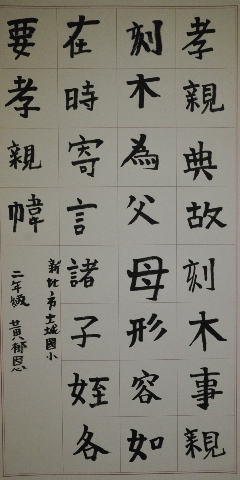 孝親典故刻木事親
刻木為父母形容如
在時寄言諸子姪各
要孝親幃
新北市土城國小
二年級 黃郁恩